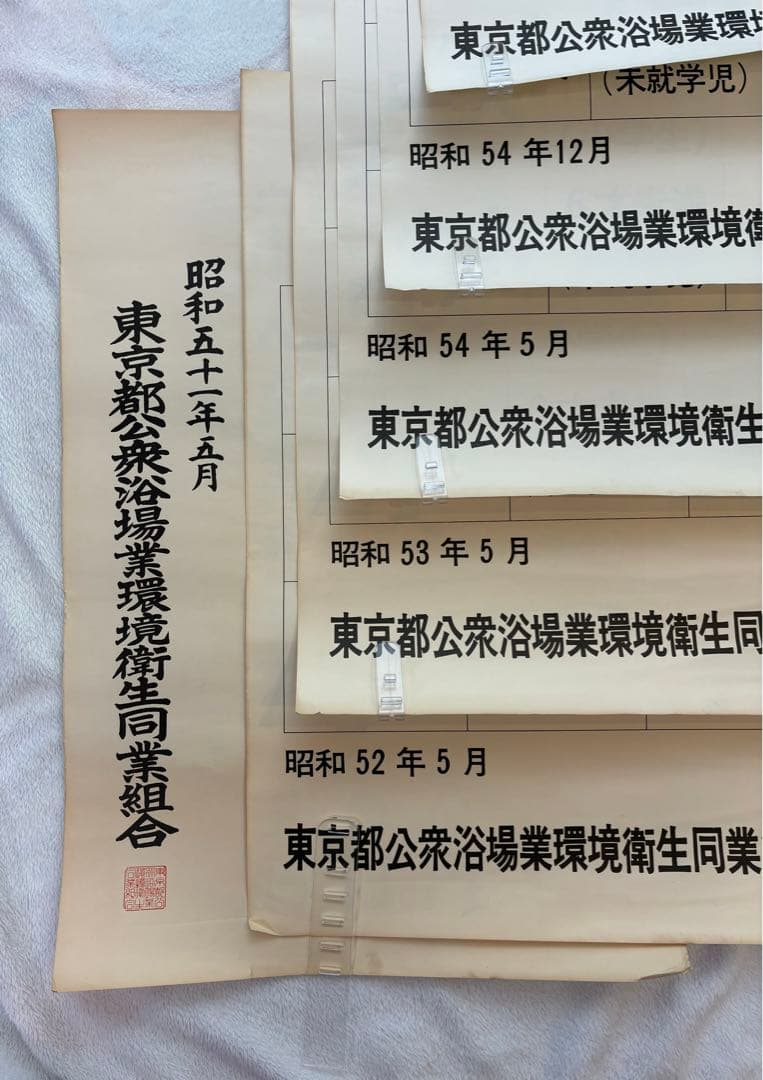 東京都公衆浴場業環境
（未就学児）
昭和 54 年12月
東京都公衆浴場業環境衛
昭和 54 年 5 月
東京都公衆浴場業環境衛生
昭和 53 年 5 月
東京都公衆浴場業環境衛生同
昭和 52 年 5 月
東京都公衆浴場業環境衛生同業
昭和五十一年五月
東京都公衆浴場業環境衛生同業組合